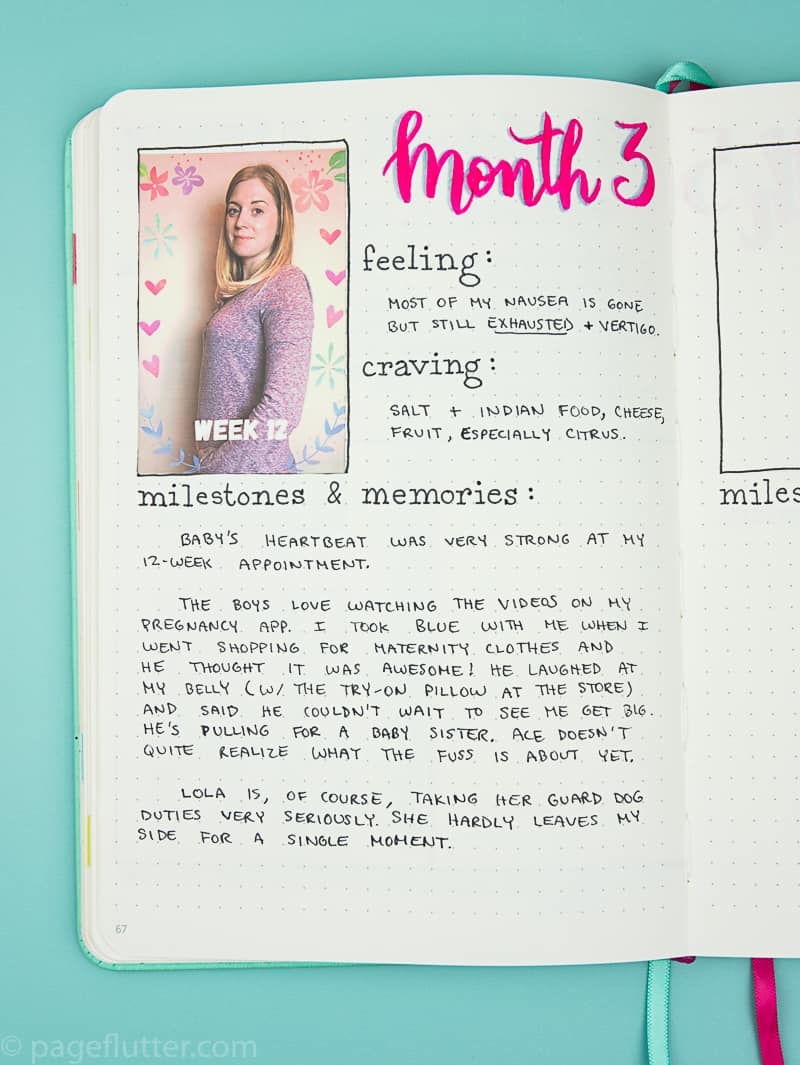 month 3
WEEK 12
feeling:
MOST OF MY NAUSEA IS GONE
BUT STILL EXHAUSTED + VERTIGO.
craving:
SALT + INDIAN FOOD, CHEESE,
FRUIT, ESPECIALLY CITRUS.
milestones & memories:
BABY'S HEARTBEAT WAS VERY STRONG AT MY
12-WEEK APPOINTMENT.
THE BOYS LOVE WATCHING THE VIDEOS ON MY
PREGNANCY APP. I TOOK BLUE WITH ME WHEN I
WENT SHOPPING FOR MATERNITY CLOTHES AND
HE THOUGHT IT WAS AWESOME! HE LAUGHED AT
MY BELLY (W/ THE TRY-ON PILLOW AT THE STORE)
AND SAID HE COULDN'T WAIT TO SEE ME GET BIG.
HE'S PULLING FOR A BABY SISTER. ACE DOESN'T
QUITE REALIZE WHAT THE FUSS IS ABOUT YET.
LOLA IS, OF COURSE, TAKING HER GUARD DOG
DUTIES VERY SERIOUSLY. SHE HARDLY LEAVES MY
SIDE FOR A SINGLE MOMENT.
67
miles
© pageflutter.com